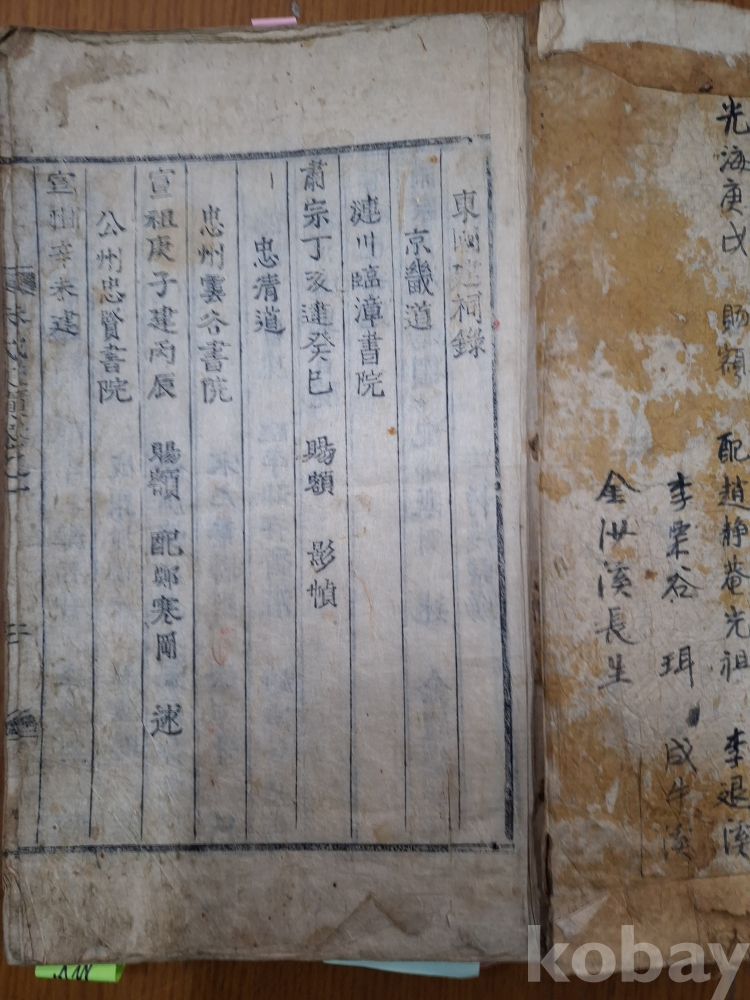 光海庚戌 賜額 配趙靜菴光祖 李退溪
李栗谷 珥 成牛溪
金沙溪長生
東國建祠錄
京畿道
漣川臨漳書院
肅宗丁亥建癸巳 賜額 影幀
忠清道
忠州雲谷書院
宣祖庚子建丙辰 賜額 配鄭寒岡 逑
公州忠賢書院
宣祖辛未建
kobay